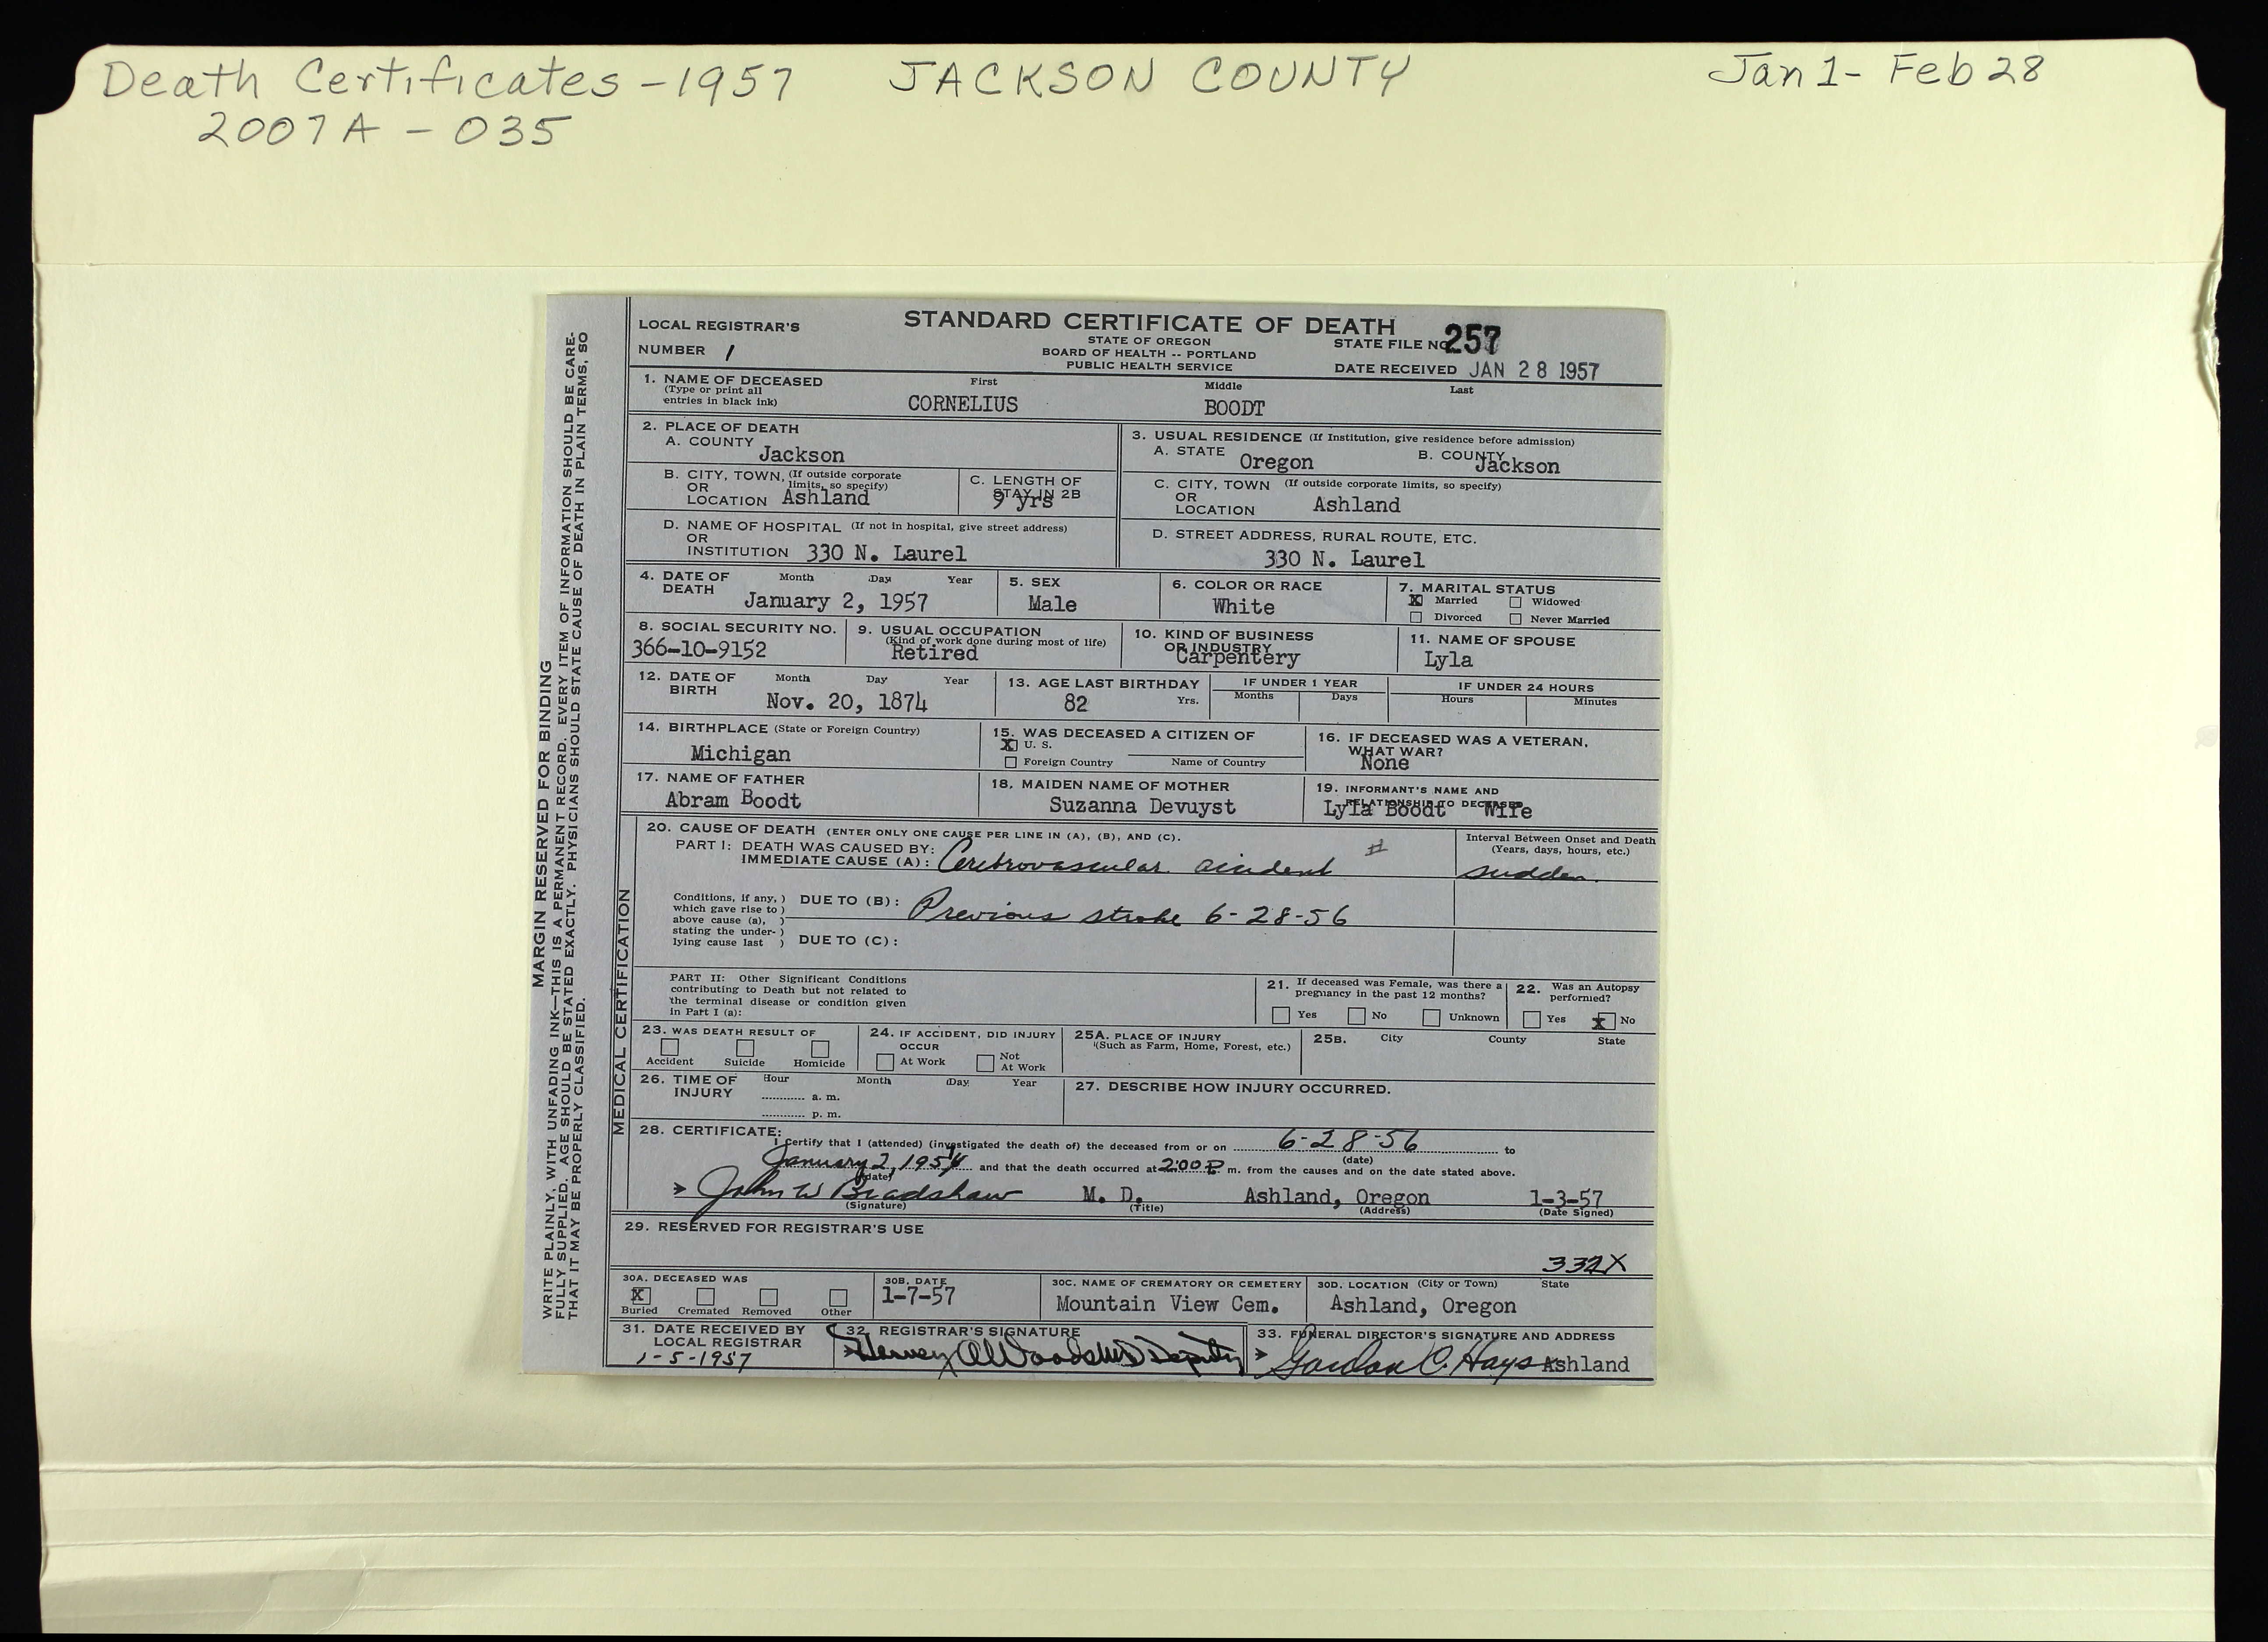 Death Certificates - 1957 JACKSON COUNTY Jan 1 - Feb 28
2007A - 035
MARGIN RESERVED FOR BINDING
WRITE PLAINLY, WITH UNFADING INK—THIS IS A PERMANENT RECORD. EVERY ITEM OF INFORMATION SHOULD BE CARE-
FULLY SUPPLIED. AGE SHOULD BE STATED EXACTLY. PHYSICIANS SHOULD STATE CAUSE OF DEATH IN PLAIN TERMS, SO
THAT IT MAY BE PROPERLY CLASSIFIED.
STANDARD CERTIFICATE OF DEATH
LOCAL REGISTRAR'S
NUMBER 1
STATE OF OREGON
BOARD OF HEALTH -- PORTLAND
PUBLIC HEALTH SERVICE
STATE FILE NO 257
DATE RECEIVED JAN 28 1957
1. NAME OF DECEASED First Middle Last
(Type or print all
entries in black ink)
CORNELIUS BOODT
2. PLACE OF DEATH
A. COUNTY
Jackson
B. CITY, TOWN, (If outside corporate
OR limits, so specify)
LOCATION Ashland
C. LENGTH OF
STAY IN 2B
9 yrs
D. NAME OF HOSPITAL (If not in hospital, give street address)
OR
INSTITUTION 330 N. Laurel
3. USUAL RESIDENCE (If Institution, give residence before admission)
A. STATE Oregon B. COUNTY Jackson
C. CITY, TOWN (If outside corporate limits, so specify)
OR
LOCATION Ashland
D. STREET ADDRESS, RURAL ROUTE, ETC.
330 N. Laurel
4. DATE OF Month Day Year
DEATH
January 2, 1957
5. SEX
Male
6. COLOR OR RACE
White
7. MARITAL STATUS
X Married Widowed
Divorced Never Married
8. SOCIAL SECURITY NO.
366-10-9152
9. USUAL OCCUPATION
(Kind of work done during most of life)
Retired
10. KIND OF BUSINESS
OR INDUSTRY
Carpentery
11. NAME OF SPOUSE
Lyla
12. DATE OF Month Day Year
BIRTH
Nov. 20, 1874
13. AGE LAST BIRTHDAY
82 Yrs.
IF UNDER 1 YEAR
Months Days
IF UNDER 24 HOURS
Hours Minutes
14. BIRTHPLACE (State or Foreign Country)
Michigan
15. WAS DECEASED A CITIZEN OF
X U. S.
Foreign Country Name of Country
16. IF DECEASED WAS A VETERAN,
WHAT WAR?
None
17. NAME OF FATHER
Abram Boodt
18. MAIDEN NAME OF MOTHER
Suzanna Devuyst
19. INFORMANT'S NAME AND
RELATIONSHIP TO DECEASED
Lyla Boodt Wife
MEDICAL CERTIFICATION
20. CAUSE OF DEATH (ENTER ONLY ONE CAUSE PER LINE IN (A), (B), AND (C).
PART I: DEATH WAS CAUSED BY:
IMMEDIATE CAUSE (A): Cerebrovascular accident #
Interval Between Onset and Death
(Years, days, hours, etc.)
sudden
Conditions, if any, )
which gave rise to )
above cause (a), )
stating the under- )
lying cause last )
DUE TO (B): Previous stroke 6-28-56
DUE TO (C):
PART II: Other Significant Conditions
contributing to Death but not related to
the terminal disease or condition given
in Part I (a):
21. If deceased was Female, was there a
pregnancy in the past 12 months?
Yes No Unknown
22. Was an Autopsy
performed?
Yes X No
23. WAS DEATH RESULT OF
Accident Suicide Homicide
24. IF ACCIDENT, DID INJURY
OCCUR
At Work Not
At Work
25A. PLACE OF INJURY
(Such as Farm, Home, Forest, etc.)
25B. City County State
26. TIME OF Hour Month Day Year
INJURY
a. m.
p. m.
27. DESCRIBE HOW INJURY OCCURRED.
28. CERTIFICATE:
I certify that I (attended) (investigated the death of) the deceased from or on 6-28-56 to
(date)
January 2, 1957 and that the death occurred at 2:00 P. m. from the causes and on the date stated above.
(date)
John W Bradshaw M. D. Ashland, Oregon 1-3-57
(Signature) (Title) (Address) (Date Signed)
29. RESERVED FOR REGISTRAR'S USE
332X
30A. DECEASED WAS
X
Buried Cremated Removed Other
30B. DATE
1-7-57
30C. NAME OF CREMATORY OR CEMETERY
Mountain View Cem.
30D. LOCATION (City or Town) State
Ashland, Oregon
31. DATE RECEIVED BY
LOCAL REGISTRAR
1-5-1957
32. REGISTRAR'S SIGNATURE
Deputy
33. FUNERAL DIRECTOR'S SIGNATURE AND ADDRESS
Gordon C. Hays Ashland